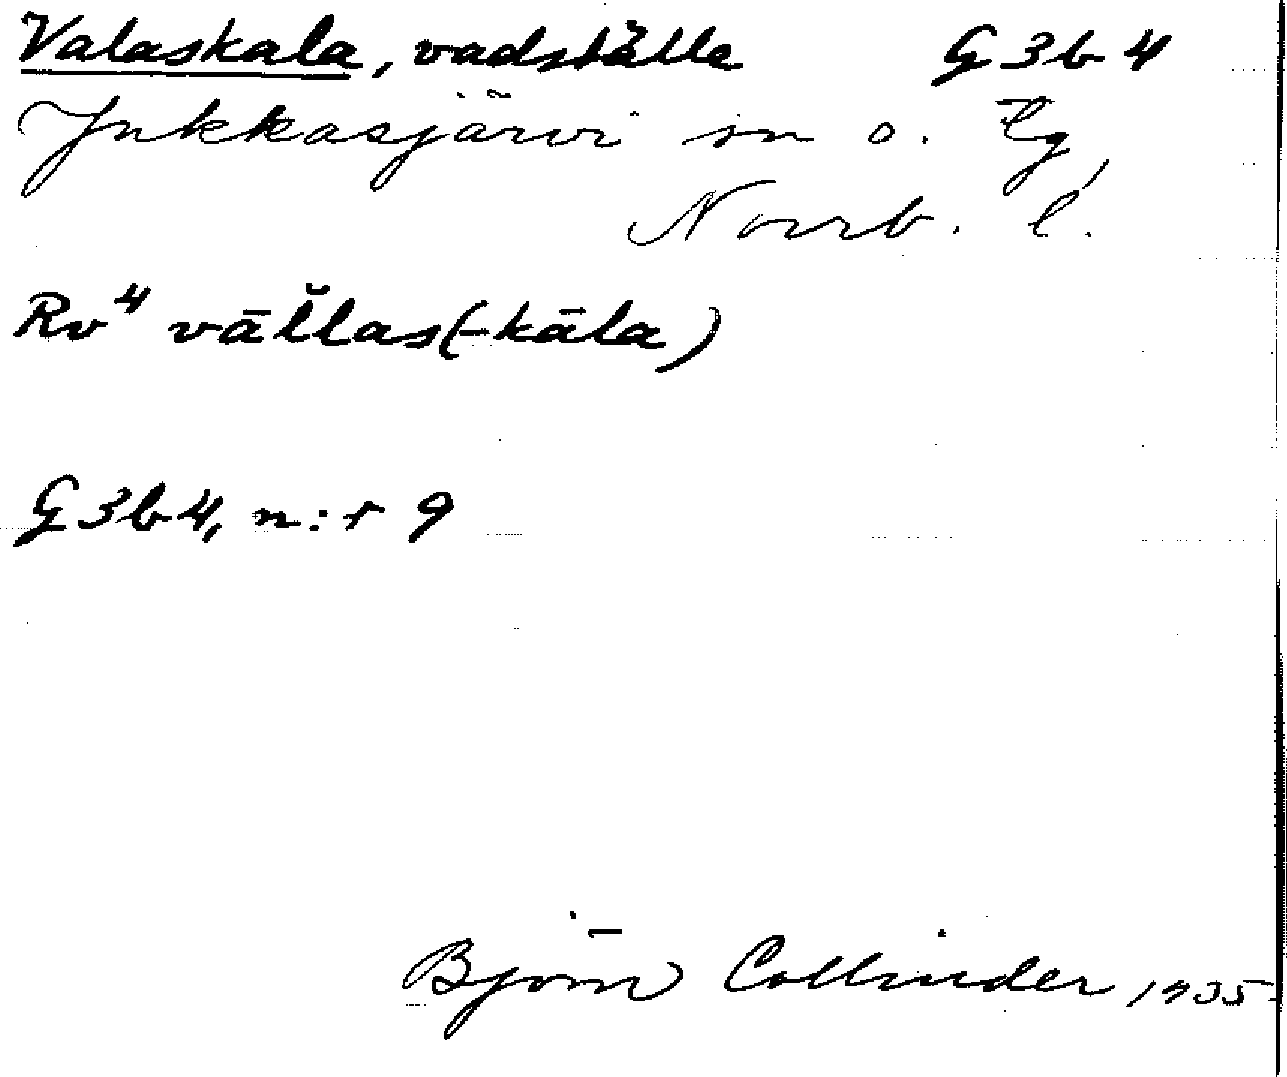 Valaskala, vadställe G 3 b 4
Jukkasjärvi sn o. tg
Norrb. l.
Rv⁴ vāl̆las(-kāla)
G 3 b 4, n:r 9
Björn Collinder 1935